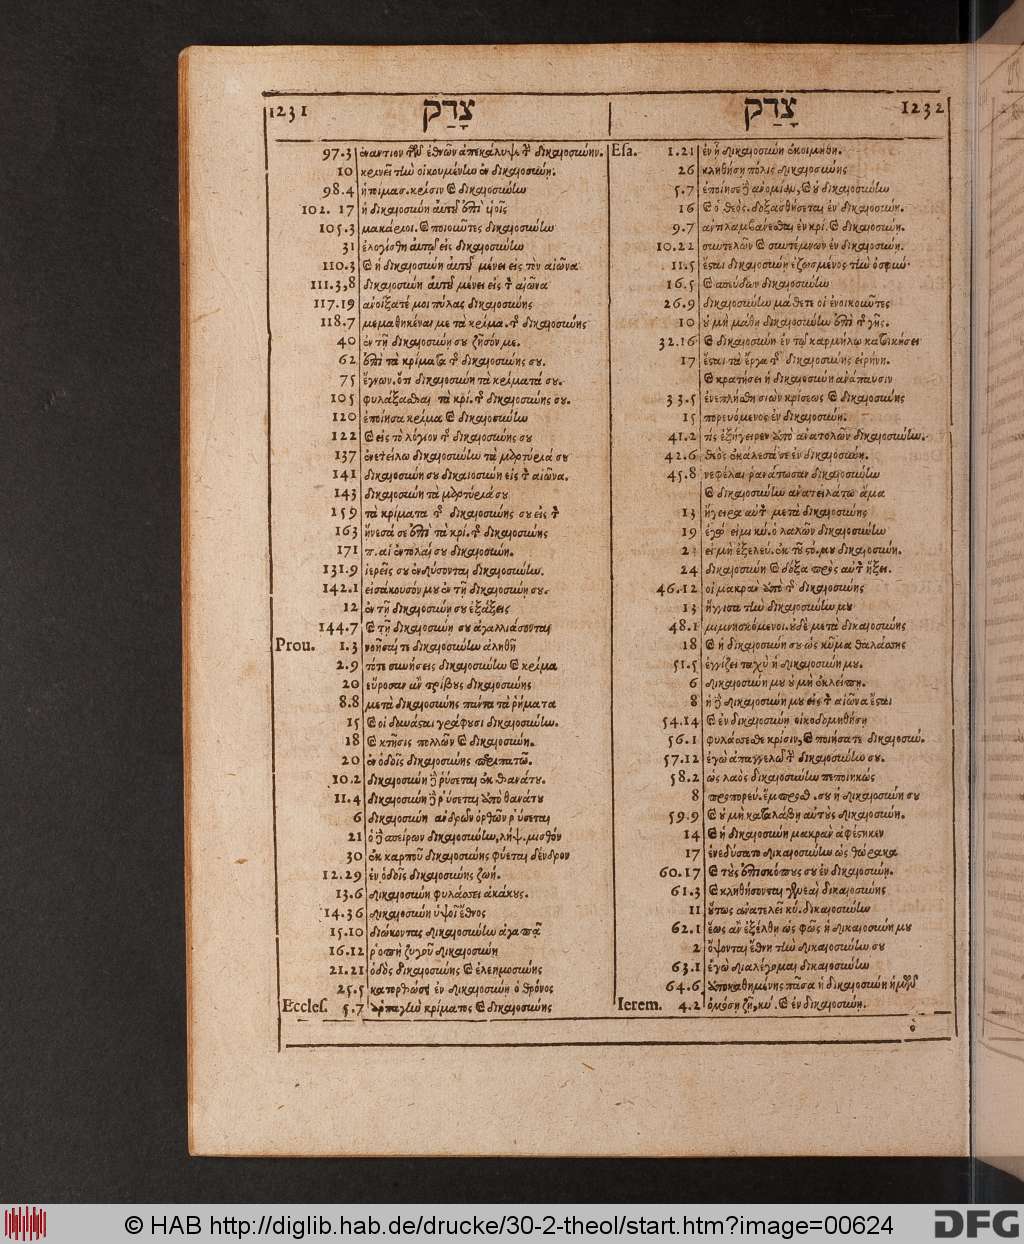 1231
צָדַק
97.3 ἐναντίον τῶν ἐθνῶν ἀπεκάλυψε τὴν δικαιοσύνην.
10 κρινεῖ τὴν οἰκουμένην ἐν δικαιοσύνῃ.
98.4 ἡτοίμασ. κρίσιν καὶ δικαιοσύνην
102. 17 ἡ δικαιοσύνη αὐτοῦ ἐπὶ υἱοῖς
105.3 μακάριοι. καὶ ποιοῦντες δικαιοσύνην
31 ἐλογίσθη αὐτῷ εἰς δικαιοσύνην
110.3 καὶ ἡ δικαιοσύνη αὐτοῦ μένει εἰς τὸν αἰῶνα
111.3,8 δικαιοσύνη αὐτοῦ μένει εἰς τὸν αἰῶνα
117.19 ἀνοίξατέ μοι πύλας δικαιοσύνης
118.7 μεμαθηκέναι με τὰ κρίμα. τῆς δικαιοσύνης
40 ἐν τῇ δικαιοσύνῃ σου ζῆσόν με.
62 ἐπὶ τὰ κρίματα τῆς δικαιοσύνης σου.
75 ἔγνων. ὅτι δικαιοσύνη τὰ κρίματά σου.
105 φυλάξασθαι τὰ κρί. τῆς δικαιοσύνης σου.
120 ἐποίησα κρίμα καὶ δικαιοσύνην
122 καὶ εἰς τὸ λόγιον τῆς δικαιοσύνης σου
137 ἐνετείλω δικαιοσύνην τὰ μαρτύριά σου
141 δικαιοσύνη σου δικαιοσύνη εἰς τὸν αἰῶνα.
143 δικαιοσύνη τὰ μαρτύριά σου
159 τὰ κρίματα τῆς δικαιοσύνης σου εἰς τὸν
163 ᾔνεσά σε ἐπὶ τὰ κρί. τῆς δικαιοσύνης
171 π. αἱ ἐντολαί σου δικαιοσύνη.
131.9 ἱερεῖς σου ἐνδύσονται δικαιοσύνην.
142.1 εἰσάκουσόν μου ἐν τῇ δικαιοσύνῃ σου.
12 ἐν τῇ δικαιοσύνῃ σου ἐξάξεις
144.7 καὶ τῇ δικαιοσύνῃ σου ἀγαλλιάσονται
Prou. 1.3 νοῆσαί τε δικαιοσύνην ἀληθῆ
2.9 τότε συνήσεις δικαιοσύνην καὶ κρίμα
20 εὕροσαν ἂν τρίβους δικαιοσύνης
8.8 μετὰ δικαιοσύνης πάντα τὰ ῥήματα
15 καὶ οἱ δυνάσται γράφουσι δικαιοσύνην.
18 καὶ κτῆσις πολλῶν καὶ δικαιοσύνη.
20 ἐν ὁδοῖς δικαιοσύνης περιπατῶ.
10.2 δικαιοσύνη δὲ ῥύσεται ἐκ θανάτου.
11.4 δικαιοσύνη δὲ ῥύσεται ἀπὸ θανάτου
6 δικαιοσύνη ἀνδρῶν ὀρθῶν ῥύσεται
21 ὁ δὲ σπείρων δικαιοσύνην, λήψ. μισθόν
30 ἐκ καρποῦ δικαιοσύνης φύεται δένδρον
12.29 ἐν ὁδοῖς δικαιοσύνης ζωή.
13.6 δικαιοσύνη φυλάσσει ἀκάκους.
14.36 δικαιοσύνη ὑψοῖ ἔθνος
15.10 διώκοντας δικαιοσύνην ἀγαπᾷ
16.12 ῥοπὴ ζυγοῦ δικαιοσύνη
21.21 ὁδὸς δικαιοσύνης καὶ ἐλεημοσύνης
25.5 κατορθώσει ἐν δικαιοσύνῃ ὁ θρόνος
Eccles. 5.7 ἁρπαγὴν κρίματος καὶ δικαιοσύνης
צָדַק
1232
Esa. 1.21 ἐν ᾗ δικαιοσύνη ἐκοιμήθη.
26 κληθήσῃ πόλις δικαιοσύνης
5.7 ἐποίησε δὲ ἀνομίαν, καὶ οὐ δικαιοσύνην
16 καὶ ὁ θεὸς. δοξασθήσεται ἐν δικαιοσύνῃ.
9.7 ἀντιλαμβάνεσθαι ἐν κρί. καὶ δικαιοσύνῃ.
10.22 συντελῶν καὶ συντέμνων ἐν δικαιοσύνῃ.
11.5 ἔσται δικαιοσύνῃ ἐζωσμένος τὴν ὀσφύν
16.5 καὶ σπεύδων δικαιοσύνην
26.9 δικαιοσύνην μάθετε οἱ ἐνοικοῦντες
10 οὐ μὴ μάθῃ δικαιοσύνην ἐπὶ τῆς γῆς.
32.16 καὶ δικαιοσύνη ἐν τῷ καρμήλῳ κατοικήσει
17 ἔσται τὰ ἔργα τῆς δικαιοσύνης εἰρήνη.
καὶ κρατήσει ἡ δικαιοσύνη ἀνάπαυσιν
33.5 ἐνεπλήσθη σιὼν κρίσεως καὶ δικαιοσύνης
15 πορευόμενος ἐν δικαιοσύνῃ.
41.2 τίς ἐξήγειρεν ἀπὸ ἀνατολῶν δικαιοσύνην.
42.6 θεὸς ἐκάλεσά σε ἐν δικαιοσύνῃ.
45.8 νεφέλαι ῥανάτωσαν δικαιοσύνην
καὶ δικαιοσύνην ἀνατειλάτω ἅμα
13 ἤγειρα αὐτὸν μετὰ δικαιοσύνης
19 ἐγώ εἰμι κύ. ὁ λαλῶν δικαιοσύνην
2 εἰ μὴ ἐξελεύ. ἐκ τοῦ στό. μου δικαιοσύνη.
24 δικαιοσύνη καὶ δόξα πρὸς αὐτὸν ἥξει.
46.12 οἱ μακρὰν ἀπὸ τῆς δικαιοσύνης
13 ἤγγισα τὴν δικαιοσύνην μου
48.1 μιμνησκόμενοι. οὐδὲ μετὰ δικαιοσύνης
18 καὶ ἡ δικαιοσύνη σου ὡς κῦμα θαλάσσης
51.5 ἐγγίζει ταχὺ ἡ δικαιοσύνη μου.
6 δικαιοσύνη μου οὐ μὴ ἐκλείπῃ.
8 ἡ δὲ δικαιοσύνη μου εἰς τὸν αἰῶνα ἔσται
54.14 καὶ ἐν δικαιοσύνῃ οἰκοδομηθήσῃ
56.1 φυλάσσεσθε κρίσιν, καὶ ποιήσατε δικαιοσύ.
57.12 ἐγὼ ἀπαγγελῶ τὴν δικαιοσύνην σου.
58.2 ὡς λαὸς δικαιοσύνην πεποιηκὼς
8 προπορεύ. ἔμπροσθ. σου ἡ δικαιοσύνη σου
59.9 καὶ οὐ μὴ καταλάβῃ αὐτοὺς δικαιοσύνη.
14 καὶ ἡ δικαιοσύνη μακρὰν ἀφέστηκεν
17 ἐνεδύσατο δικαιοσύνην ὡς θώρακα
60.17 καὶ τοὺς ἐπισκόπους σου ἐν δικαιοσύνῃ.
61.3 καὶ κληθήσονται γενεαὶ δικαιοσύνης
11 οὕτως ἀνατελεῖ κύ. δικαιοσύνην
62.1 ἕως ἂν ἐξέλθῃ ὡς φῶς ἡ δικαιοσύνη μου
2 ὄψονται ἔθνη τὴν δικαιοσύνην σου
63.1 ἐγὼ διαλέγομαι δικαιοσύνην
64.6 ἀποκαθημένης πᾶσα ἡ δικαιοσύνη ἡμῶν
Ierem. 4.2 ὀμόσῃ ζῇ, κύ. καὶ ἐν δικαιοσύνῃ.
ὁ
© HAB http://diglib.hab.de/drucke/30-2-theol/start.htm?image=00624
DFG